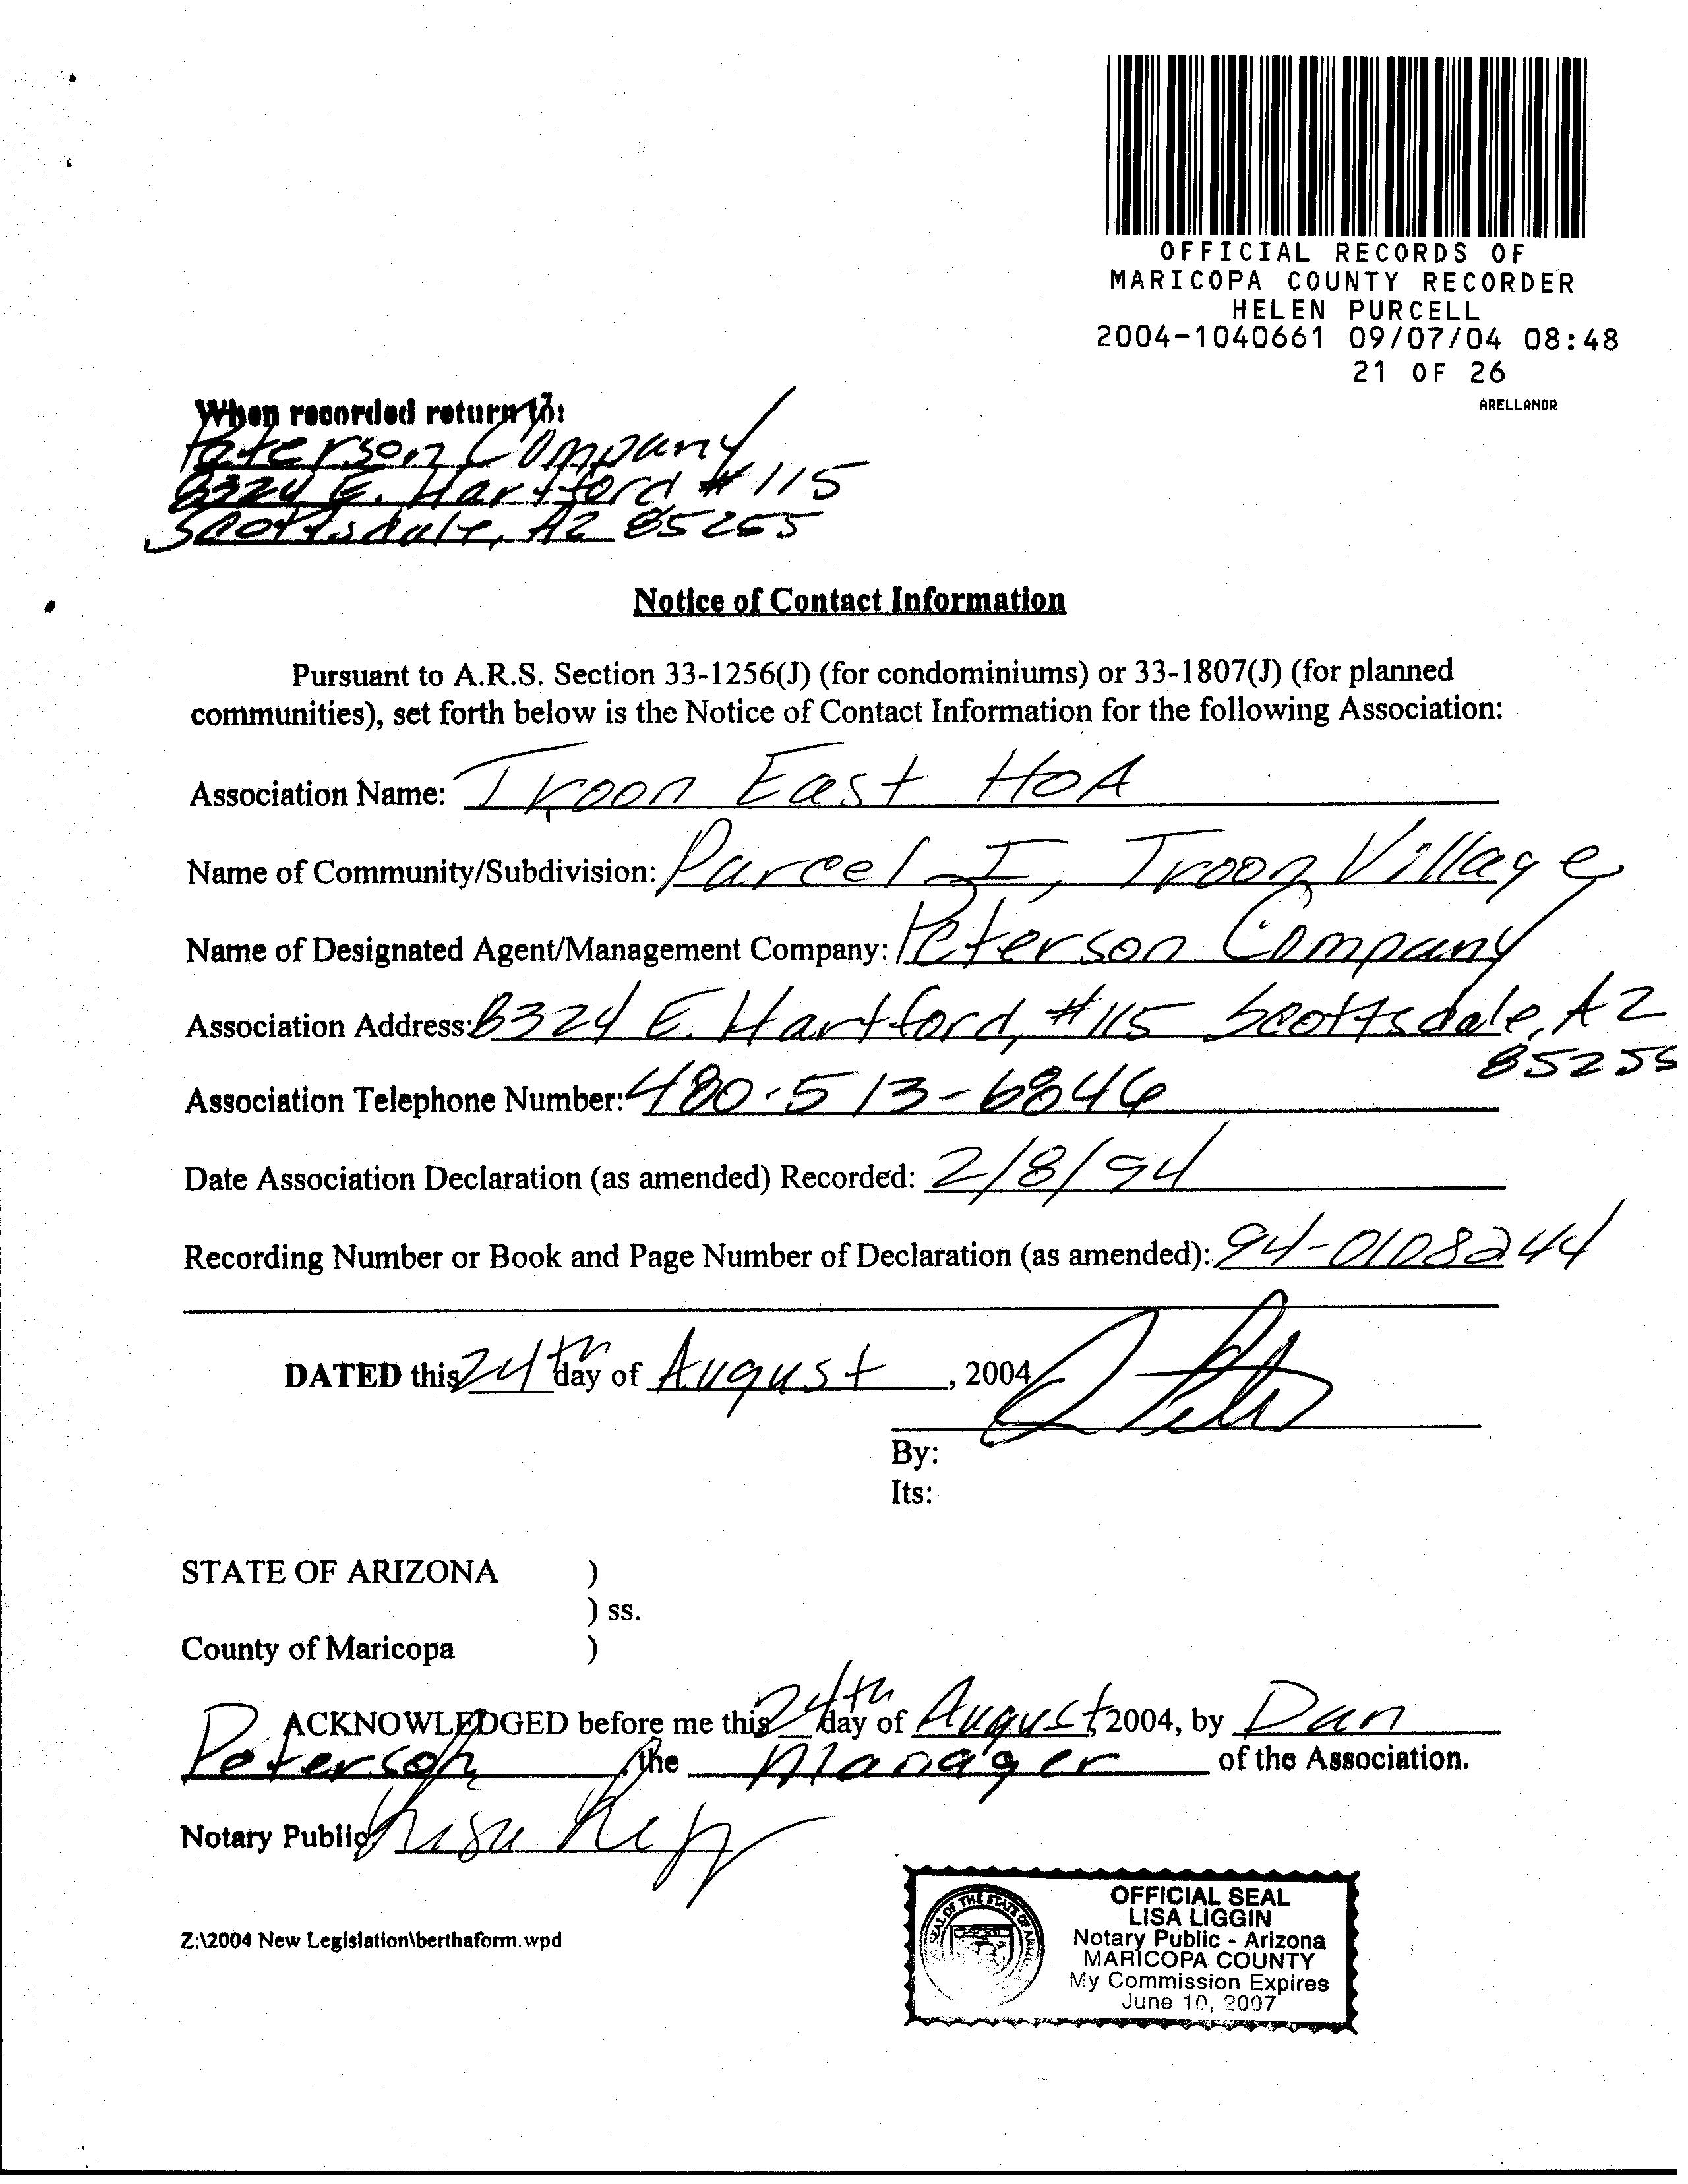 OFFICIAL RECORDS OF
MARICOPA COUNTY RECORDER
HELEN PURCELL
2004-1040661 09/07/04 08:48
21 OF 26
ARELLANOR
When recorded return to:
Peterson Company
8324 E. Hartford #115
Scottsdale, AZ 85255
Notice of Contact Information
Pursuant to A.R.S. Section 33-1256(J) (for condominiums) or 33-1807(J) (for planned
communities), set forth below is the Notice of Contact Information for the following Association:
Association Name: Troon East HOA
Name of Community/Subdivision: Parcel I, Troon Village
Name of Designated Agent/Management Company: Peterson Company
Association Address: 8324 E. Hartford, #115 Scottsdale, AZ
85255
Association Telephone Number: 480-513-6846
Date Association Declaration (as amended) Recorded: 2/8/94
Recording Number or Book and Page Number of Declaration (as amended): 94-0108244
DATED this 24th day of August, 2004
By:
Its:
STATE OF ARIZONA )
) ss.
County of Maricopa )
ACKNOWLEDGED before me this 24th day of August, 2004, by Dan
Peterson, the Manager of the Association.
Notary Public: Lisa
OFFICIAL SEAL
LISA LIGGIN
Notary Public - Arizona
MARICOPA COUNTY
My Commission Expires
June 10, 2007
SEAL OF THE STATE OF ARIZONA
Z:\2004 New Legislation\berthaform.wpd